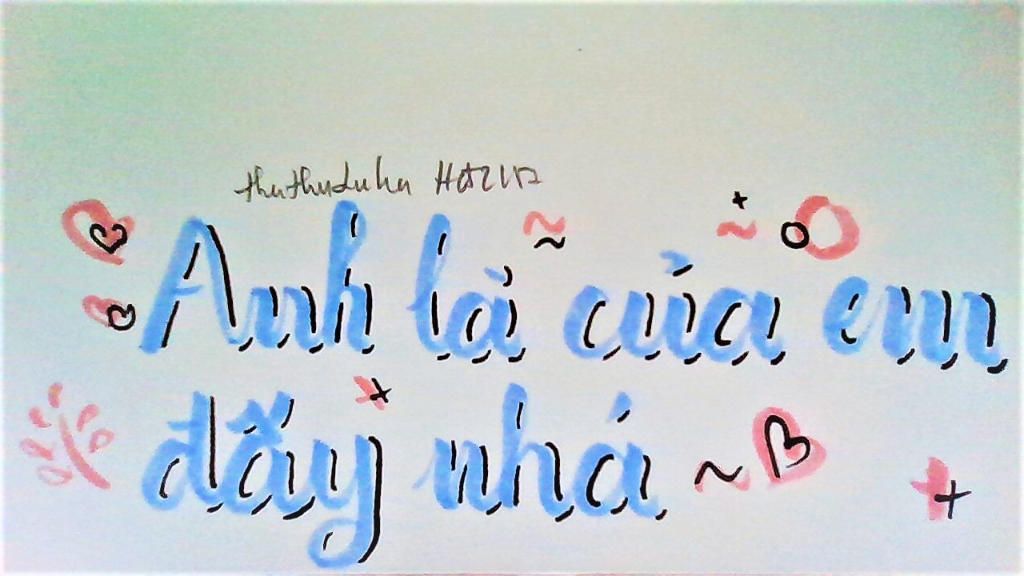 thuthuduka HAZUZ
Anh là của em
đấy nhá ~